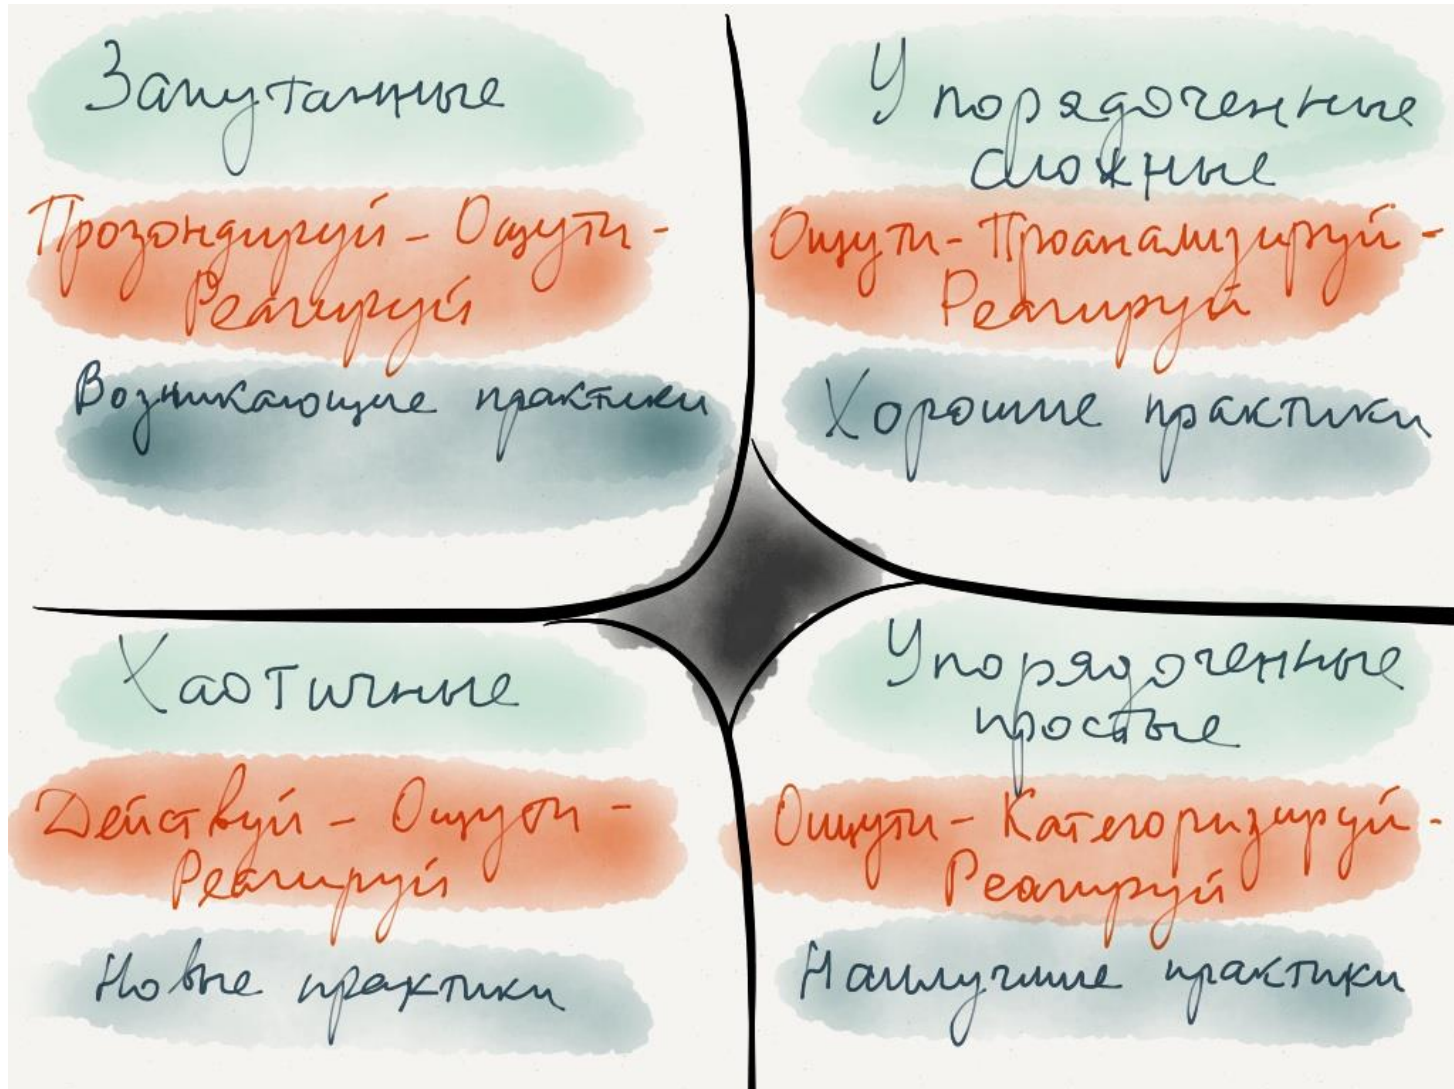 Запутанные
Прозондируй - Ощути -
Реагируй
Возникающие практики
Упорядоченные
сложные
Ощути - Проанализируй -
Реагируй
Хорошие практики
Хаотичные
Действуй - Ощути -
Реагируй
Новые практики
Упорядоченные
простые
Ощути - Категоризируй -
Реагируй
Наилучшие практики